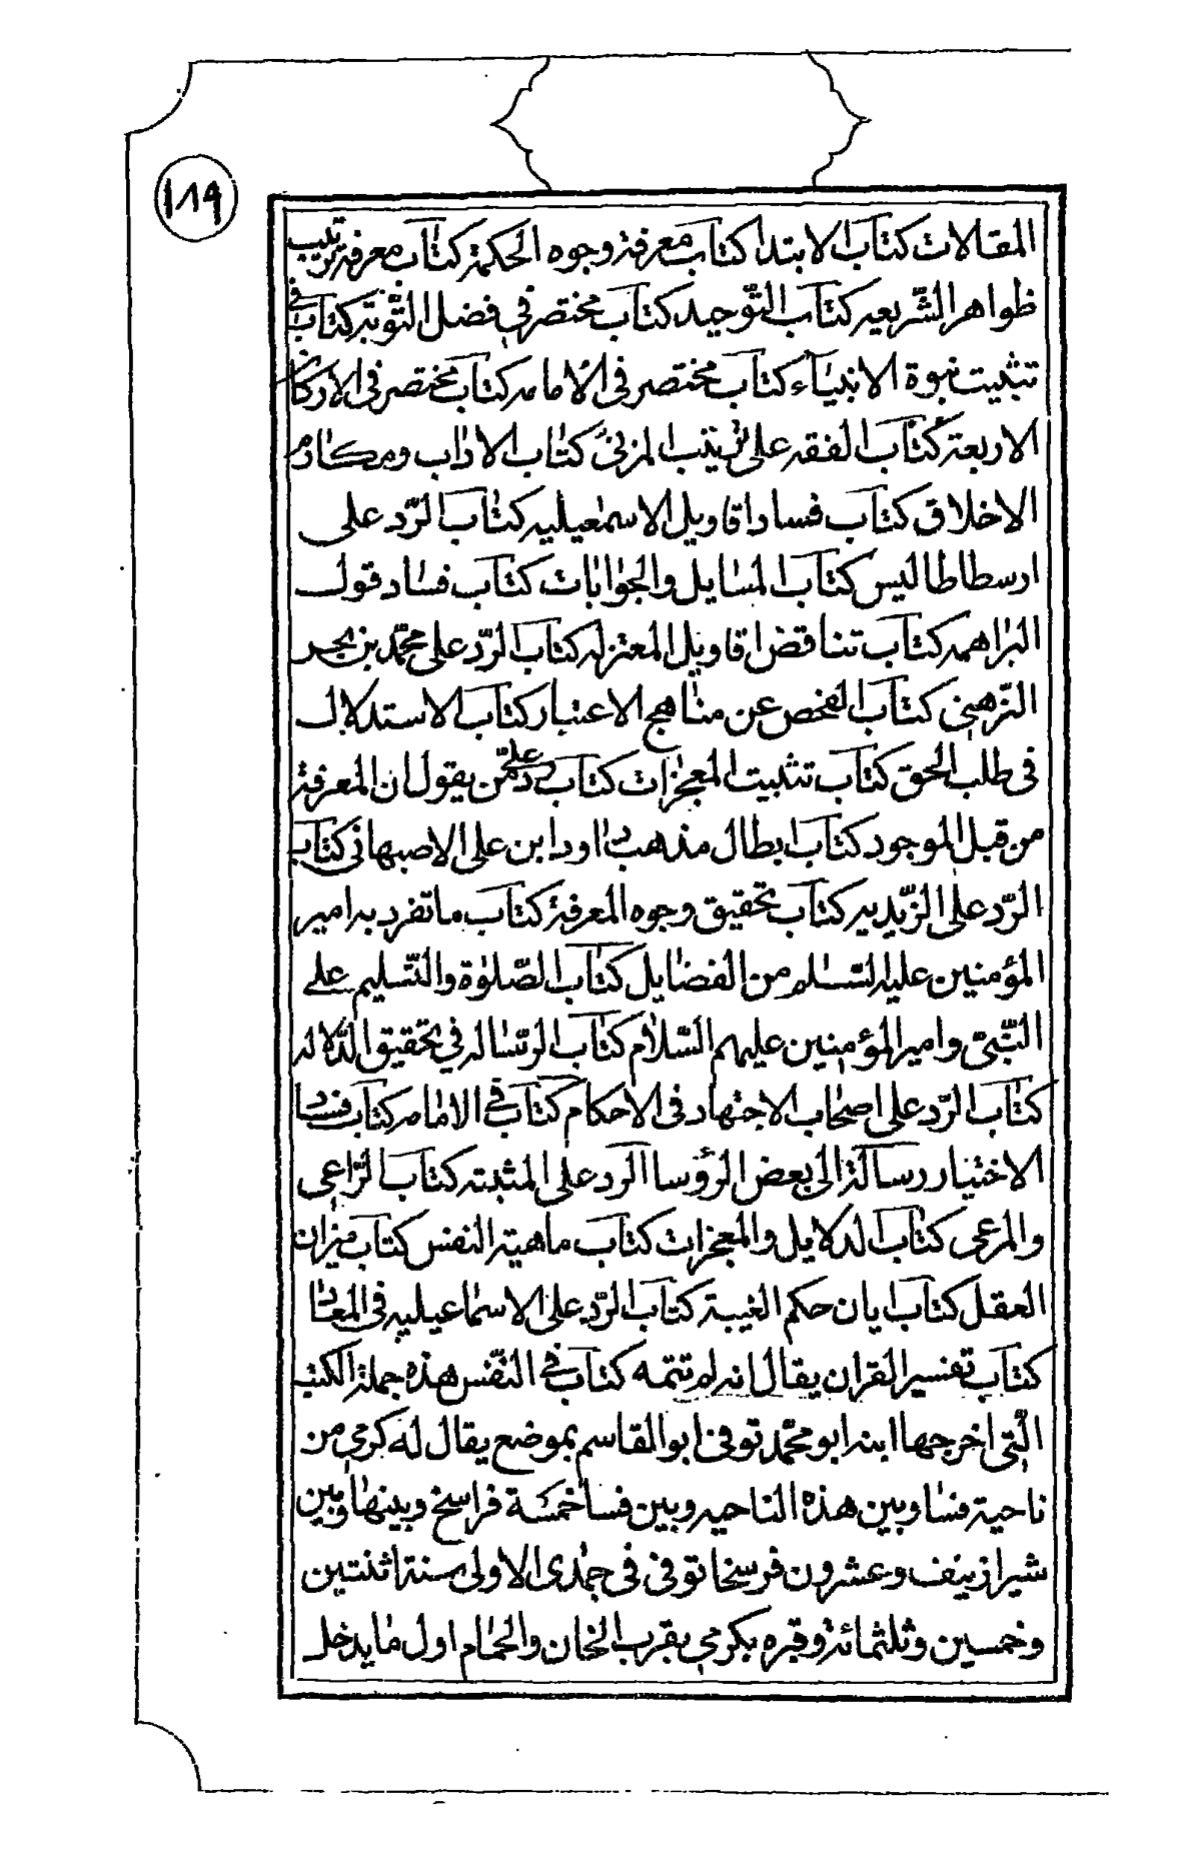 ١٨٩
المقالات كتاب الابتدا كتاب معرفة وجوه الحكمة كتاب معرفة ترتيب
ظواهر الشّريعه كتاب التّوحيد كتاب مختصر في فضل التّوبة كتاب في
تثبيت نبوة الانبياء كتاب مختصر في الامامه كتاب مختصر في الاركان
الاربعة كتاب الفقه على ترتيب المزنى كتاب الاداب ومكارم
الاخلاق كتاب فساد اقاويل الاسمعيليه كتاب الرّد على
ارسطاطاليس كتاب المسايل والجوابات كتاب فساد قول
البراهمه كتاب تناقض اقاويل المعتزله كتاب الرّد على محمّد بن بحر
الرّهنى كتاب الفحص عن مناهج الاعتبار كتاب الاستدلال
فى طلب الحق كتاب تثبيت المعجزات كتاب رد على من يقول ان المعرفة
من قبل الموجود كتاب ابطال مذهب داود ابن على الاصبهانى كتاب
الرّد على الزّيديه كتاب تحقيق وجوه المعرفة كتاب ما تفرد به امير
المؤمنين عليه السّلم من الفضايل كتاب الصّلوة والتّسليم على
النّبىّ وامير المؤمنين عليهم السّلام كتاب الرّساله في تحقيق الدّلاله
كتاب الرّد على اصحاب الاجتهاد فى الاحكام كتاب في الامامه كتاب فساد
الاختيار رسالة الى بعض الرؤسا الرد على المثبته كتاب الرّاعى
والمرعى كتاب الدلايل والمعجزات كتاب ماهية النفس كتاب ميزان
العقل كتاب ايان حكم الغيبة كتاب الرّد على الاسماعيليه فى المعاد
كتاب تفسير القران يقال انه لم تتمه كتاب في النّفس هذه جملة الكتب
الّتى اخرجها ابنه ابو محمّد توفى ابو القاسم بموضع يقال له كرمي من
ناحية فسا وبين هذه الناحيه وبين فسا خمسة فراسخ وبينها وبين
شيراز نيف وعشرون فرسخا توفى فى جمدى الاولى سنة اثنتين
وخمسين وثلثمائة وقبره بكرمي بقرب الخان والحمام اول ما يدخل